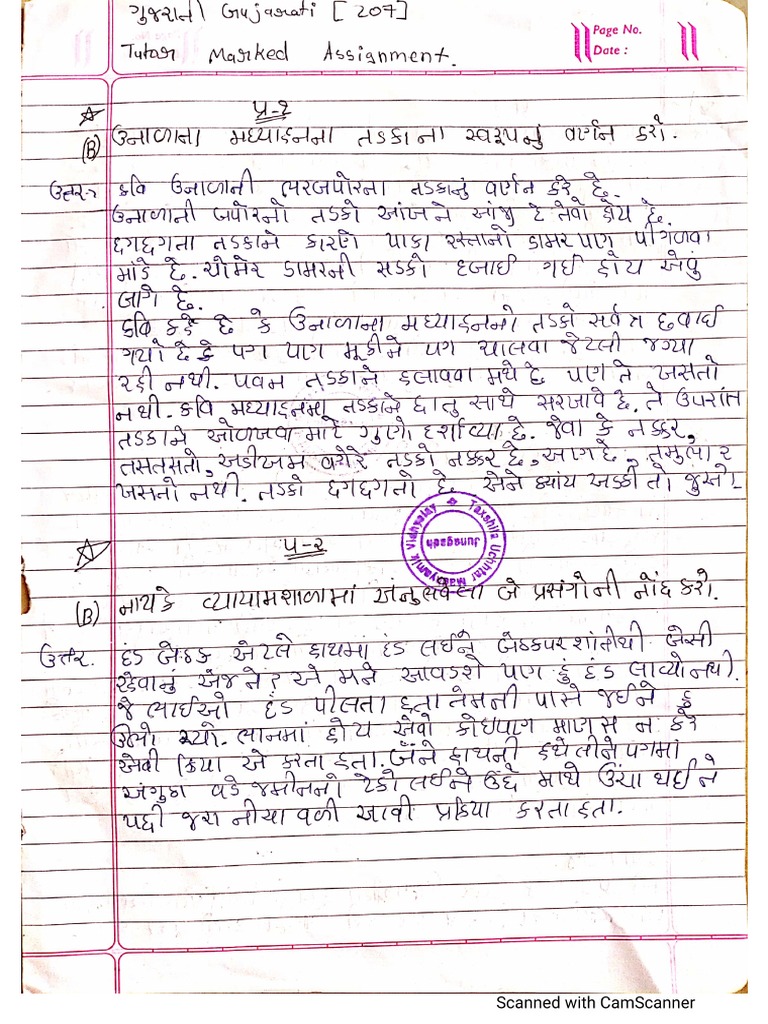 ગુજરાતી Gujarati [207]
Page No.
Date :
Tutor Marked Assignment.
પ્ર-૧
(B) ઉનાળાના મધ્યાહનના તડકાના સ્વરૂપનું વર્ણન કરો.
ઉત્તર કવિ ઉનાળાની ભરબપોરના તડકાનું વર્ણન કરે છે.
ઉનાળાની બપોરનો તડકો આંખને આંજી દે તેવો હોય છે.
ધગધગતા તડકાને કારણે પાકા રસ્તાનો ડામર પણ પીગળવા
માંડે છે. ચોમેર ડામરની સડકો દબાઈ ગઈ હોય એવું
લાગે છે.
કવિ કહે છે કે ઉનાળાના મધ્યાહનનો તડકો સર્વત્ર છવાઈ
ગયો છે કે પગ પાગ મૂકીને પગ ચાલવા જેટલી જગ્યા
રહી નથી. પવન તડકાને હલાવવા મથે છે પણ તે ખસતો
નથી. કવિ મધ્યાહનના તડકાને ધાતુ સાથે સરખાવે છે. તે ઉપરાંત
તડકાને ઓળખવા માટે ગુણો દર્શાવ્યા છે. જેવા કે નક્કર,
તસતસતો, અડીખમ વગેરે તડકો નક્કર છે, આગ છે,
ખસતો નથી. તડકો ધગધગતો છે એને ક્યાંય અડકી તો
Taxshila Uchhtar Madhyamik Vidhyalay
Junagadh
પ્ર-૨
(B) નાયકે વ્યાયામશાળામાં અનુભવેલા બે પ્રસંગોની નોંધ કરો.
ઉત્તર. દંડ બેઠક એટલે હાથમાં દંડ લઈને બેઠક પર શાંતીથી બેસી
રહેવાનું એજ ને? એ મને આવડશે પણ હું દંડ લાવ્યો નથી.
જે ભાઈઓ દંડ પીલતા હતા તેમની પાસે જઈને હું
ઉભો રહ્યો. ભાનમાં હોય એવો કોઇપણ માણસ ન કરે
એવી ક્રિયા એ કરતા હતા. બંને હાથની હથેલીને પગમાં
અંગુઠા વડે જમીનનો ટેકો લઈને ઉંધે માથે ઉંચા થઈને
પછી જરા નીચા વળી આવી પ્રક્રિયા કરતા હતા.
Scanned with CamScanner